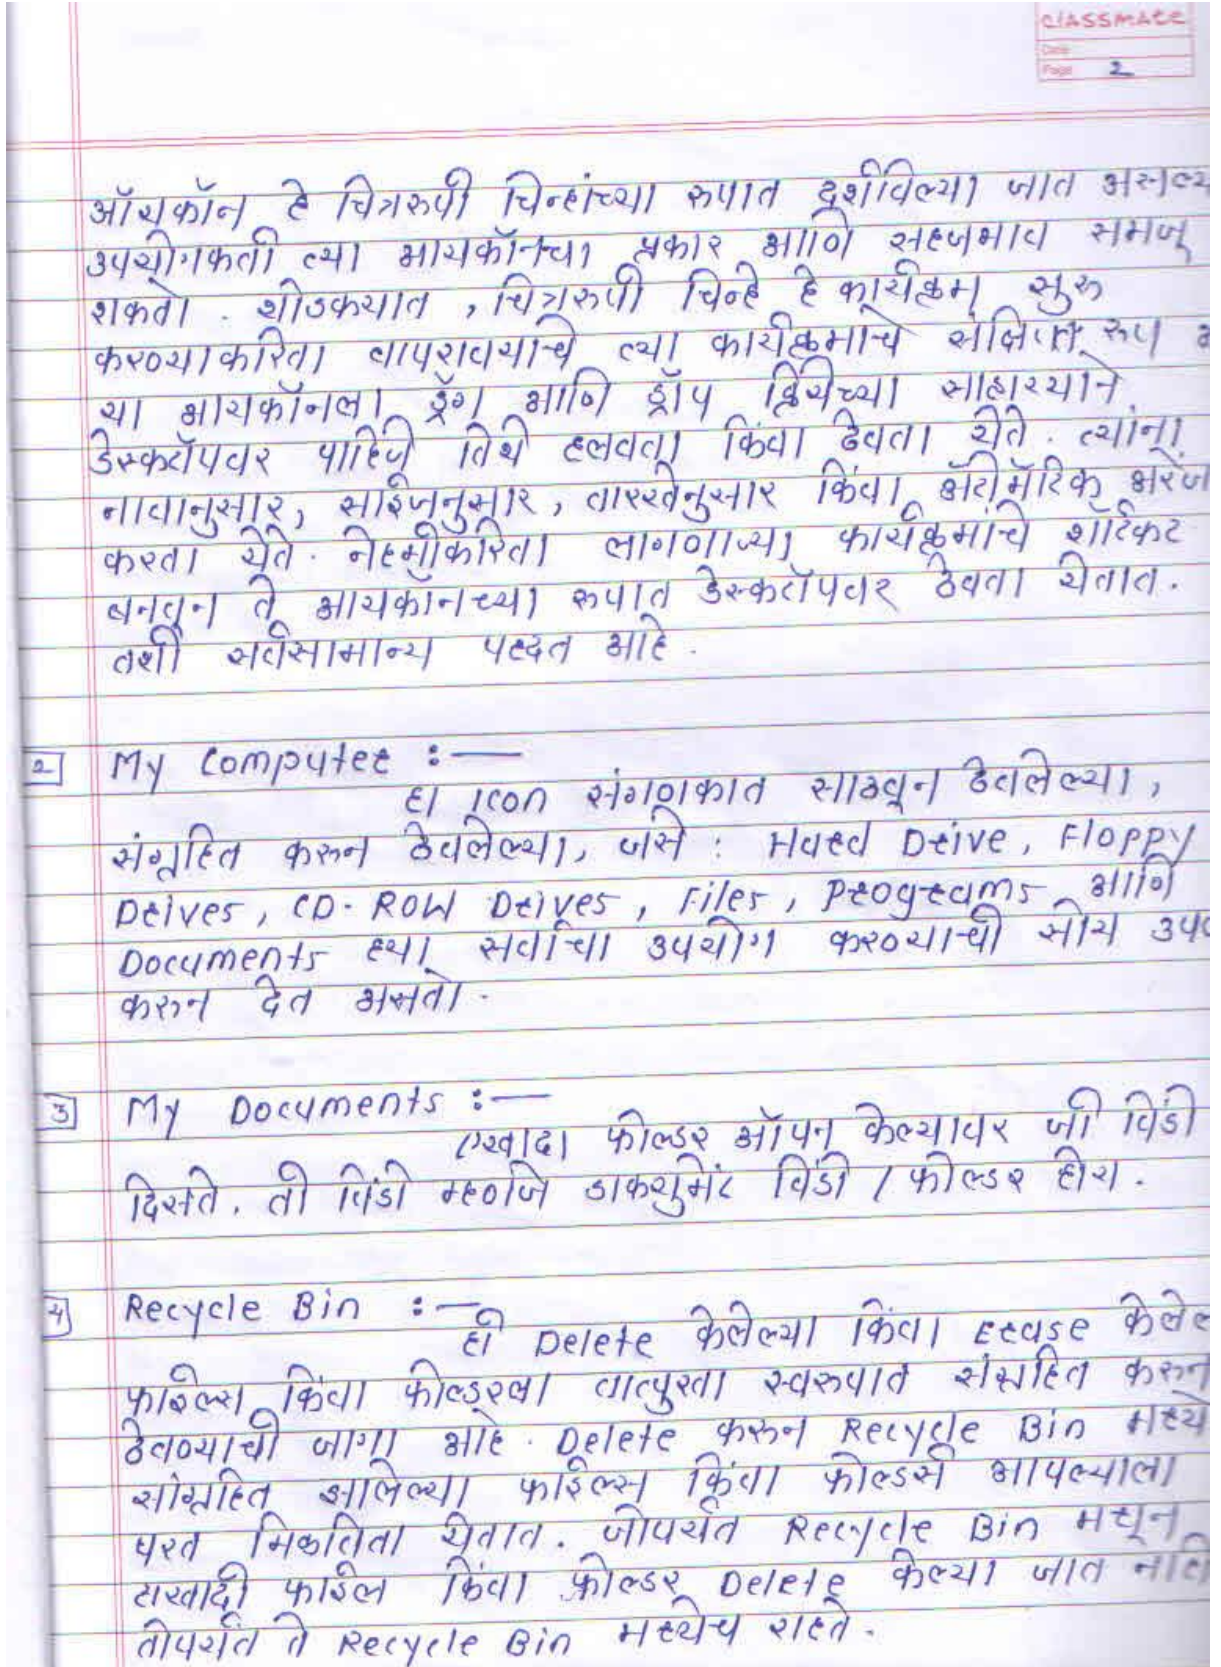 classmate
Date
Page 2
ऑयकॉन हे चित्ररुपी चिन्हांच्या रुपात दर्शविल्या जात असल्य
उपयोगकर्ता त्या आयकॉनचा प्रकार आणि सहजभाव समजू
शकतो. थोडक्यात, चित्ररुपी चिन्हे हे कार्यक्रम सुरु
करण्याकरिता वापरावयाचे त्या कार्यक्रमाचे संक्षिप्त रुप
या आयकॉनला ड्रॅग आणि ड्रॉप क्रियेच्या साहाय्याने
डेस्कटॉपवर पाहिजे तिथे हलवता किंवा ठेवता येते. त्यांना
नावानुसार, साईजनुसार, तारखेनुसार किंवा ॲटोमॅटिक अरेंज
करता येते. नेहमीकरिता लागणाऱ्या कार्यक्रमांचे शॉर्टकट
बनवून ते आयकॉनच्या रुपात डेस्कटॉपवर ठेवता येतात.
तशी सर्वसामान्य पध्दत आहे.
2 My Computer :—
हा Icon संगणकात साठवून ठेवलेल्या,
संग्रहित करुन ठेवलेल्या, जसे : Hard Drive, Floppy
Drives, CD-ROW Drives, Files, Programs आणि
Documents ह्या सर्वांचा उपयोग करण्याची सोय उप
करुन देत असतो.
3 My Documents :—
एखादा फोल्डर ऑपन केल्यावर जी विंडो
दिसते. ती विंडो म्हणजे डाक्युमेंट विंडो / फोल्डर होय.
4 Recycle Bin :—
ही Delete केलेल्या किंवा Erase केले
फाईल्स किंवा फोल्डरला तात्पुरता स्वरुपात संग्रहित करुन
ठेवण्याची जागा आहे. Delete करुन Recycle Bin मध्ये
संग्रहित झालेल्या फाईल्स किंवा फोल्डर्स आपल्याला
परत मिळविता येतात. जोपर्यंत Recycle Bin मधून
एखादी फाईल किंवा फोल्डर Delete केल्या जात नाही
तोपर्यंत ते Recycle Bin मध्येच राहते.